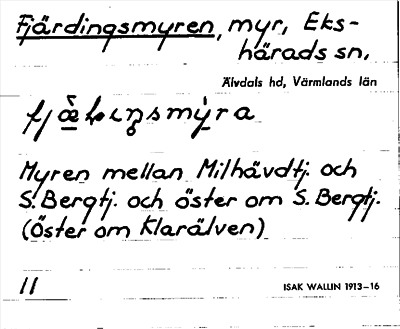 Fjärdingsmyren, myr, Eks-
härads sn.
Älvdals hd, Värmlands län
Myren mellan Milhävdtj. och
S. Bergtj. och öster om S. Bergtj.
(Öster om Klarälven)
11
ISAK WALLIN 1913–16